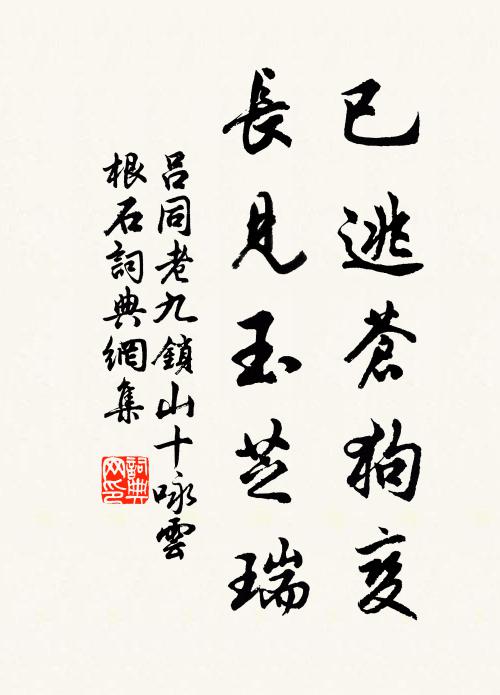 已逃蒼狗变
長見玉芝瑞
呂同老九鎖山十咏雲
根石詞典網集
詞典网印